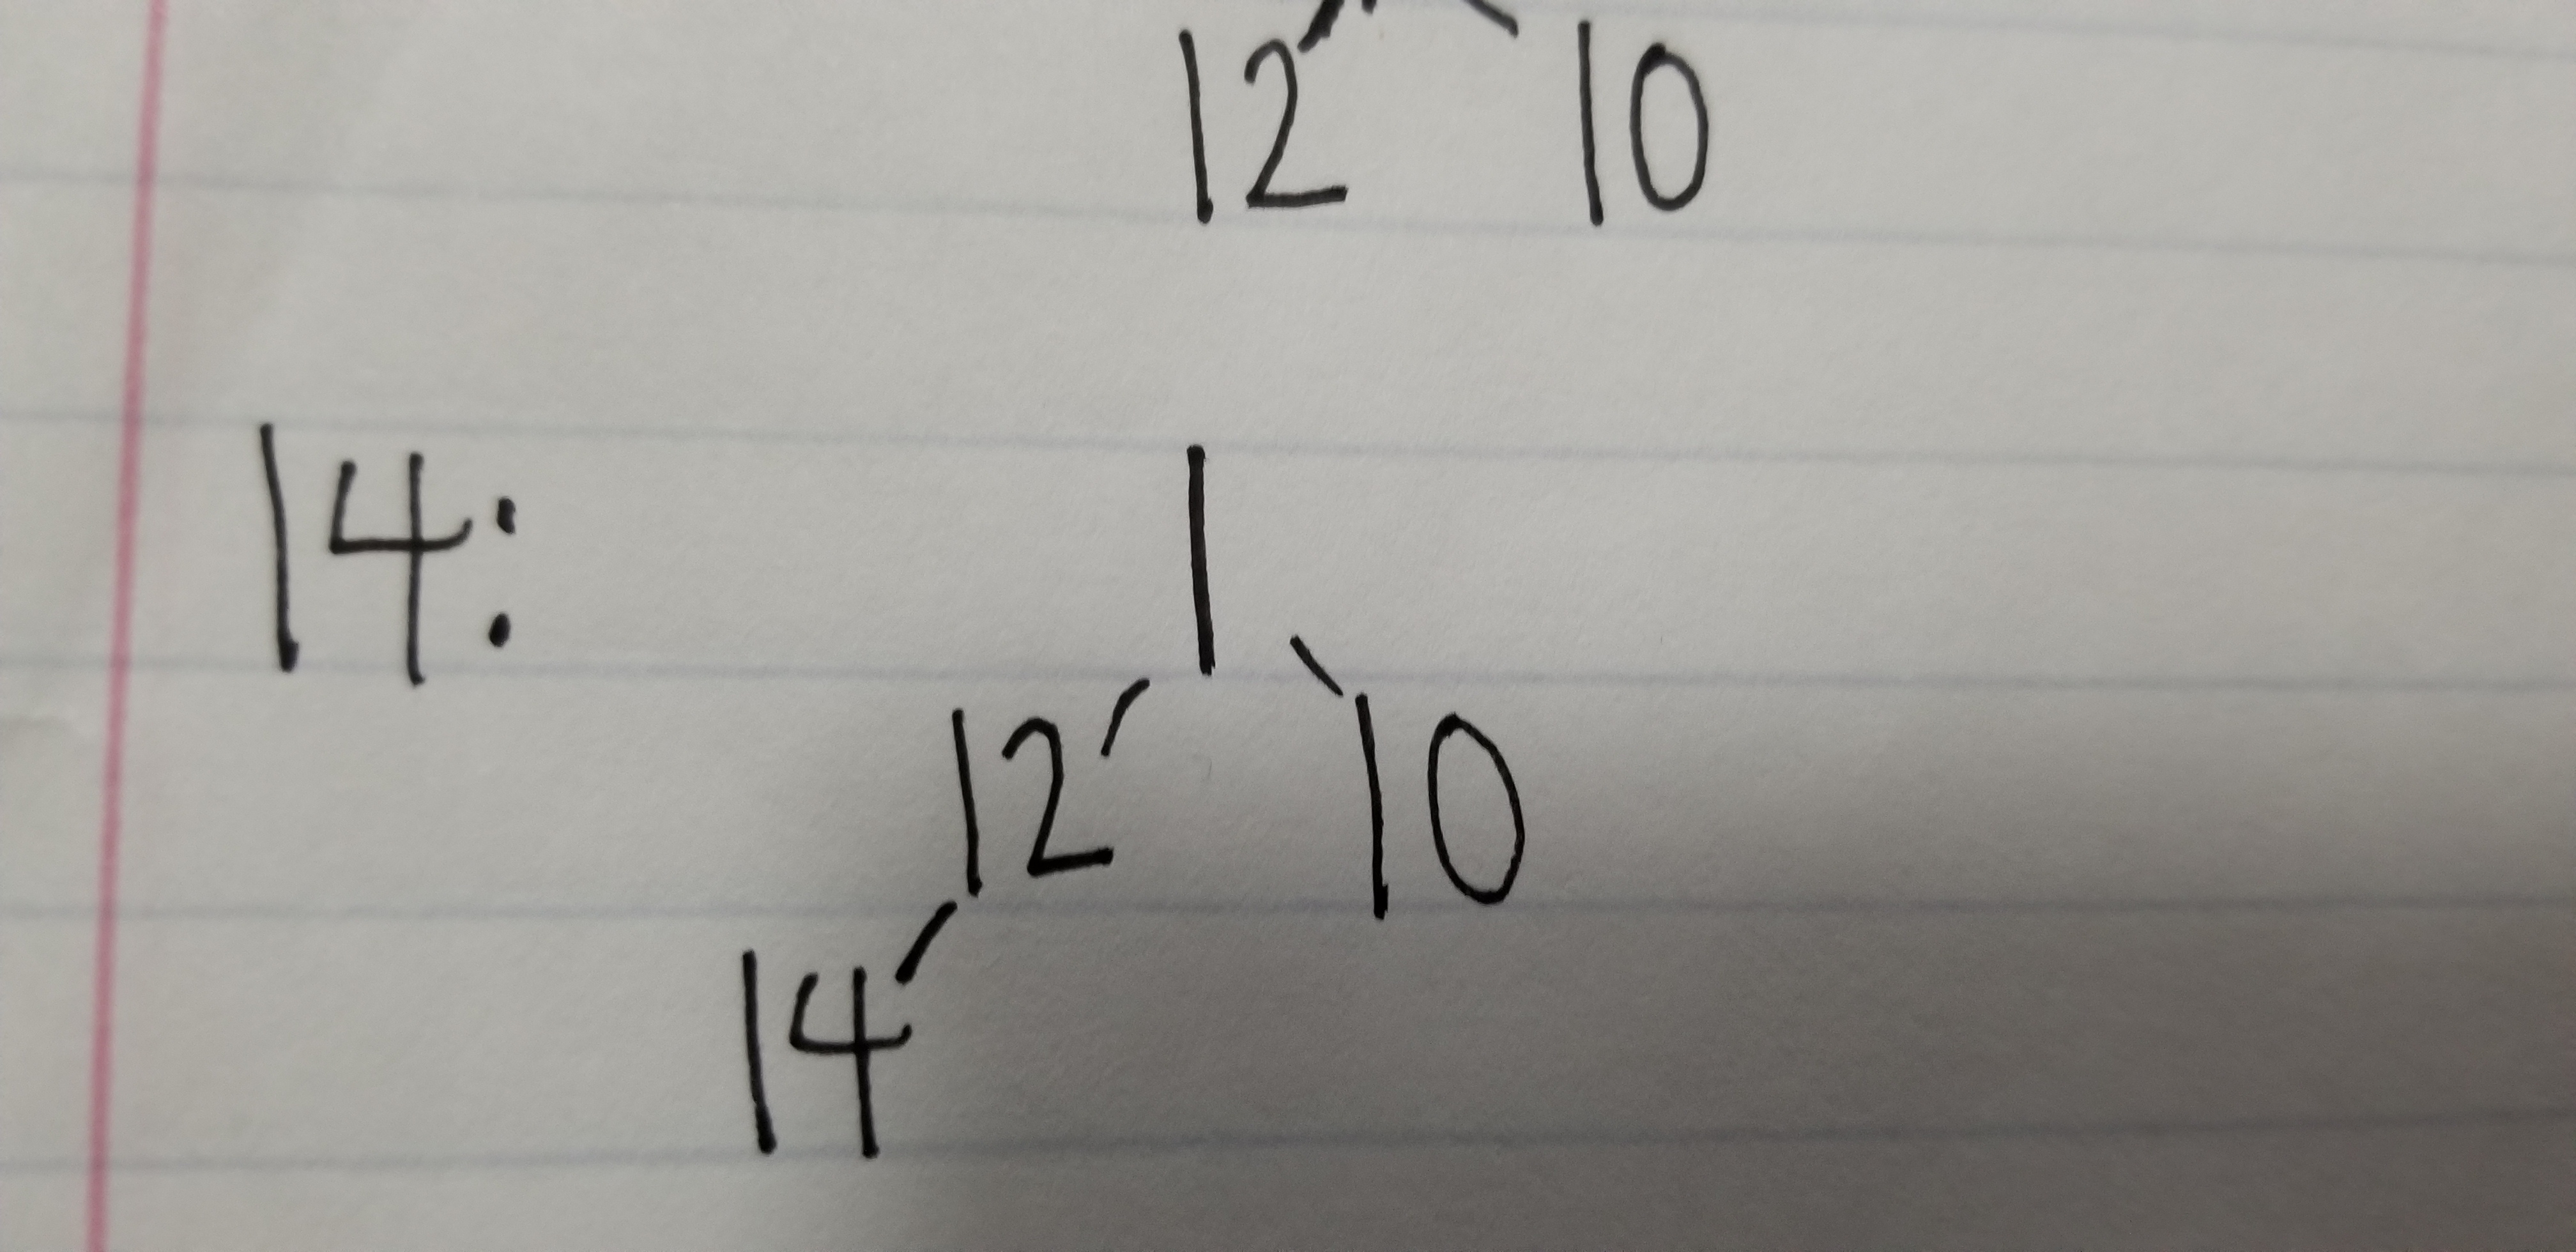 12 10
14: 1
12 10
14